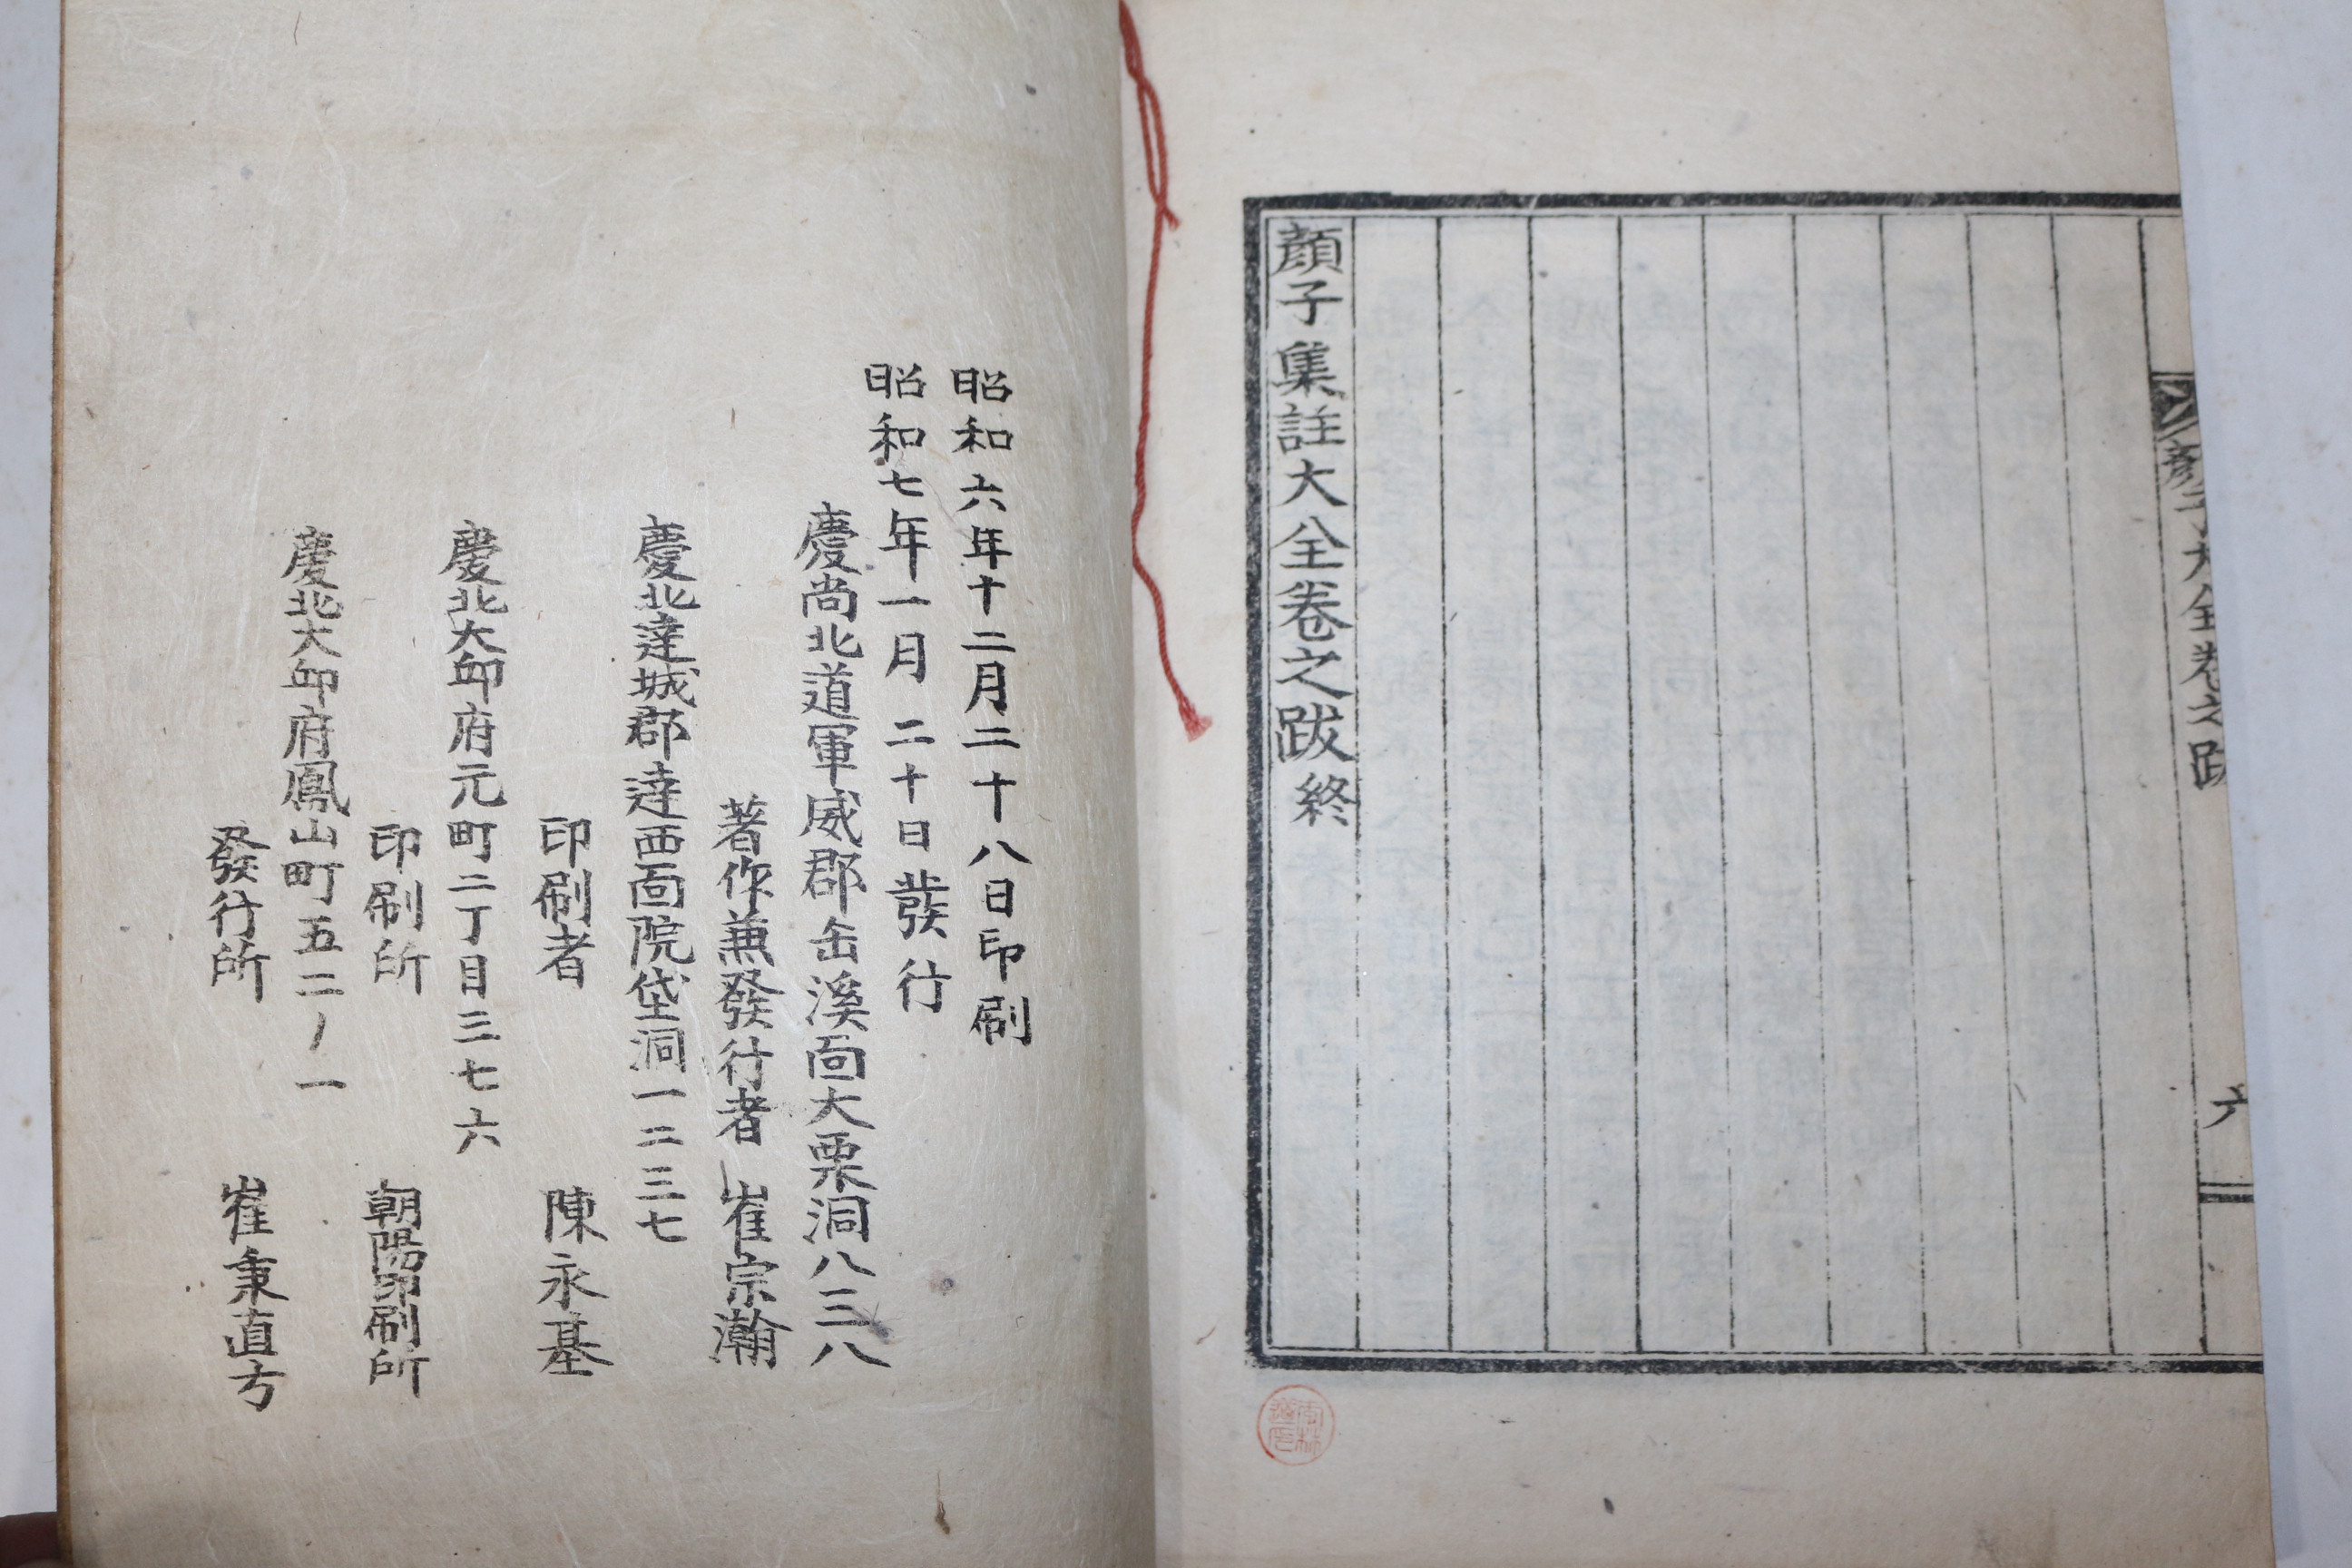 顔子大全卷之跋
六
顔子集註大全卷之跋終
昭和六年十二月二十八日印刷
昭和七年一月二十日發行
慶尚北道軍威郡缶溪面大栗洞八三八
著作兼發行者 崔宗瀚
慶北達城郡達西面院垈洞一二三七
印刷者 陳永基
慶北大邱府元町二丁目三七六
印刷所 朝陽印刷所
慶北大邱府鳳山町五二ノ一
發行所 崔秉直方